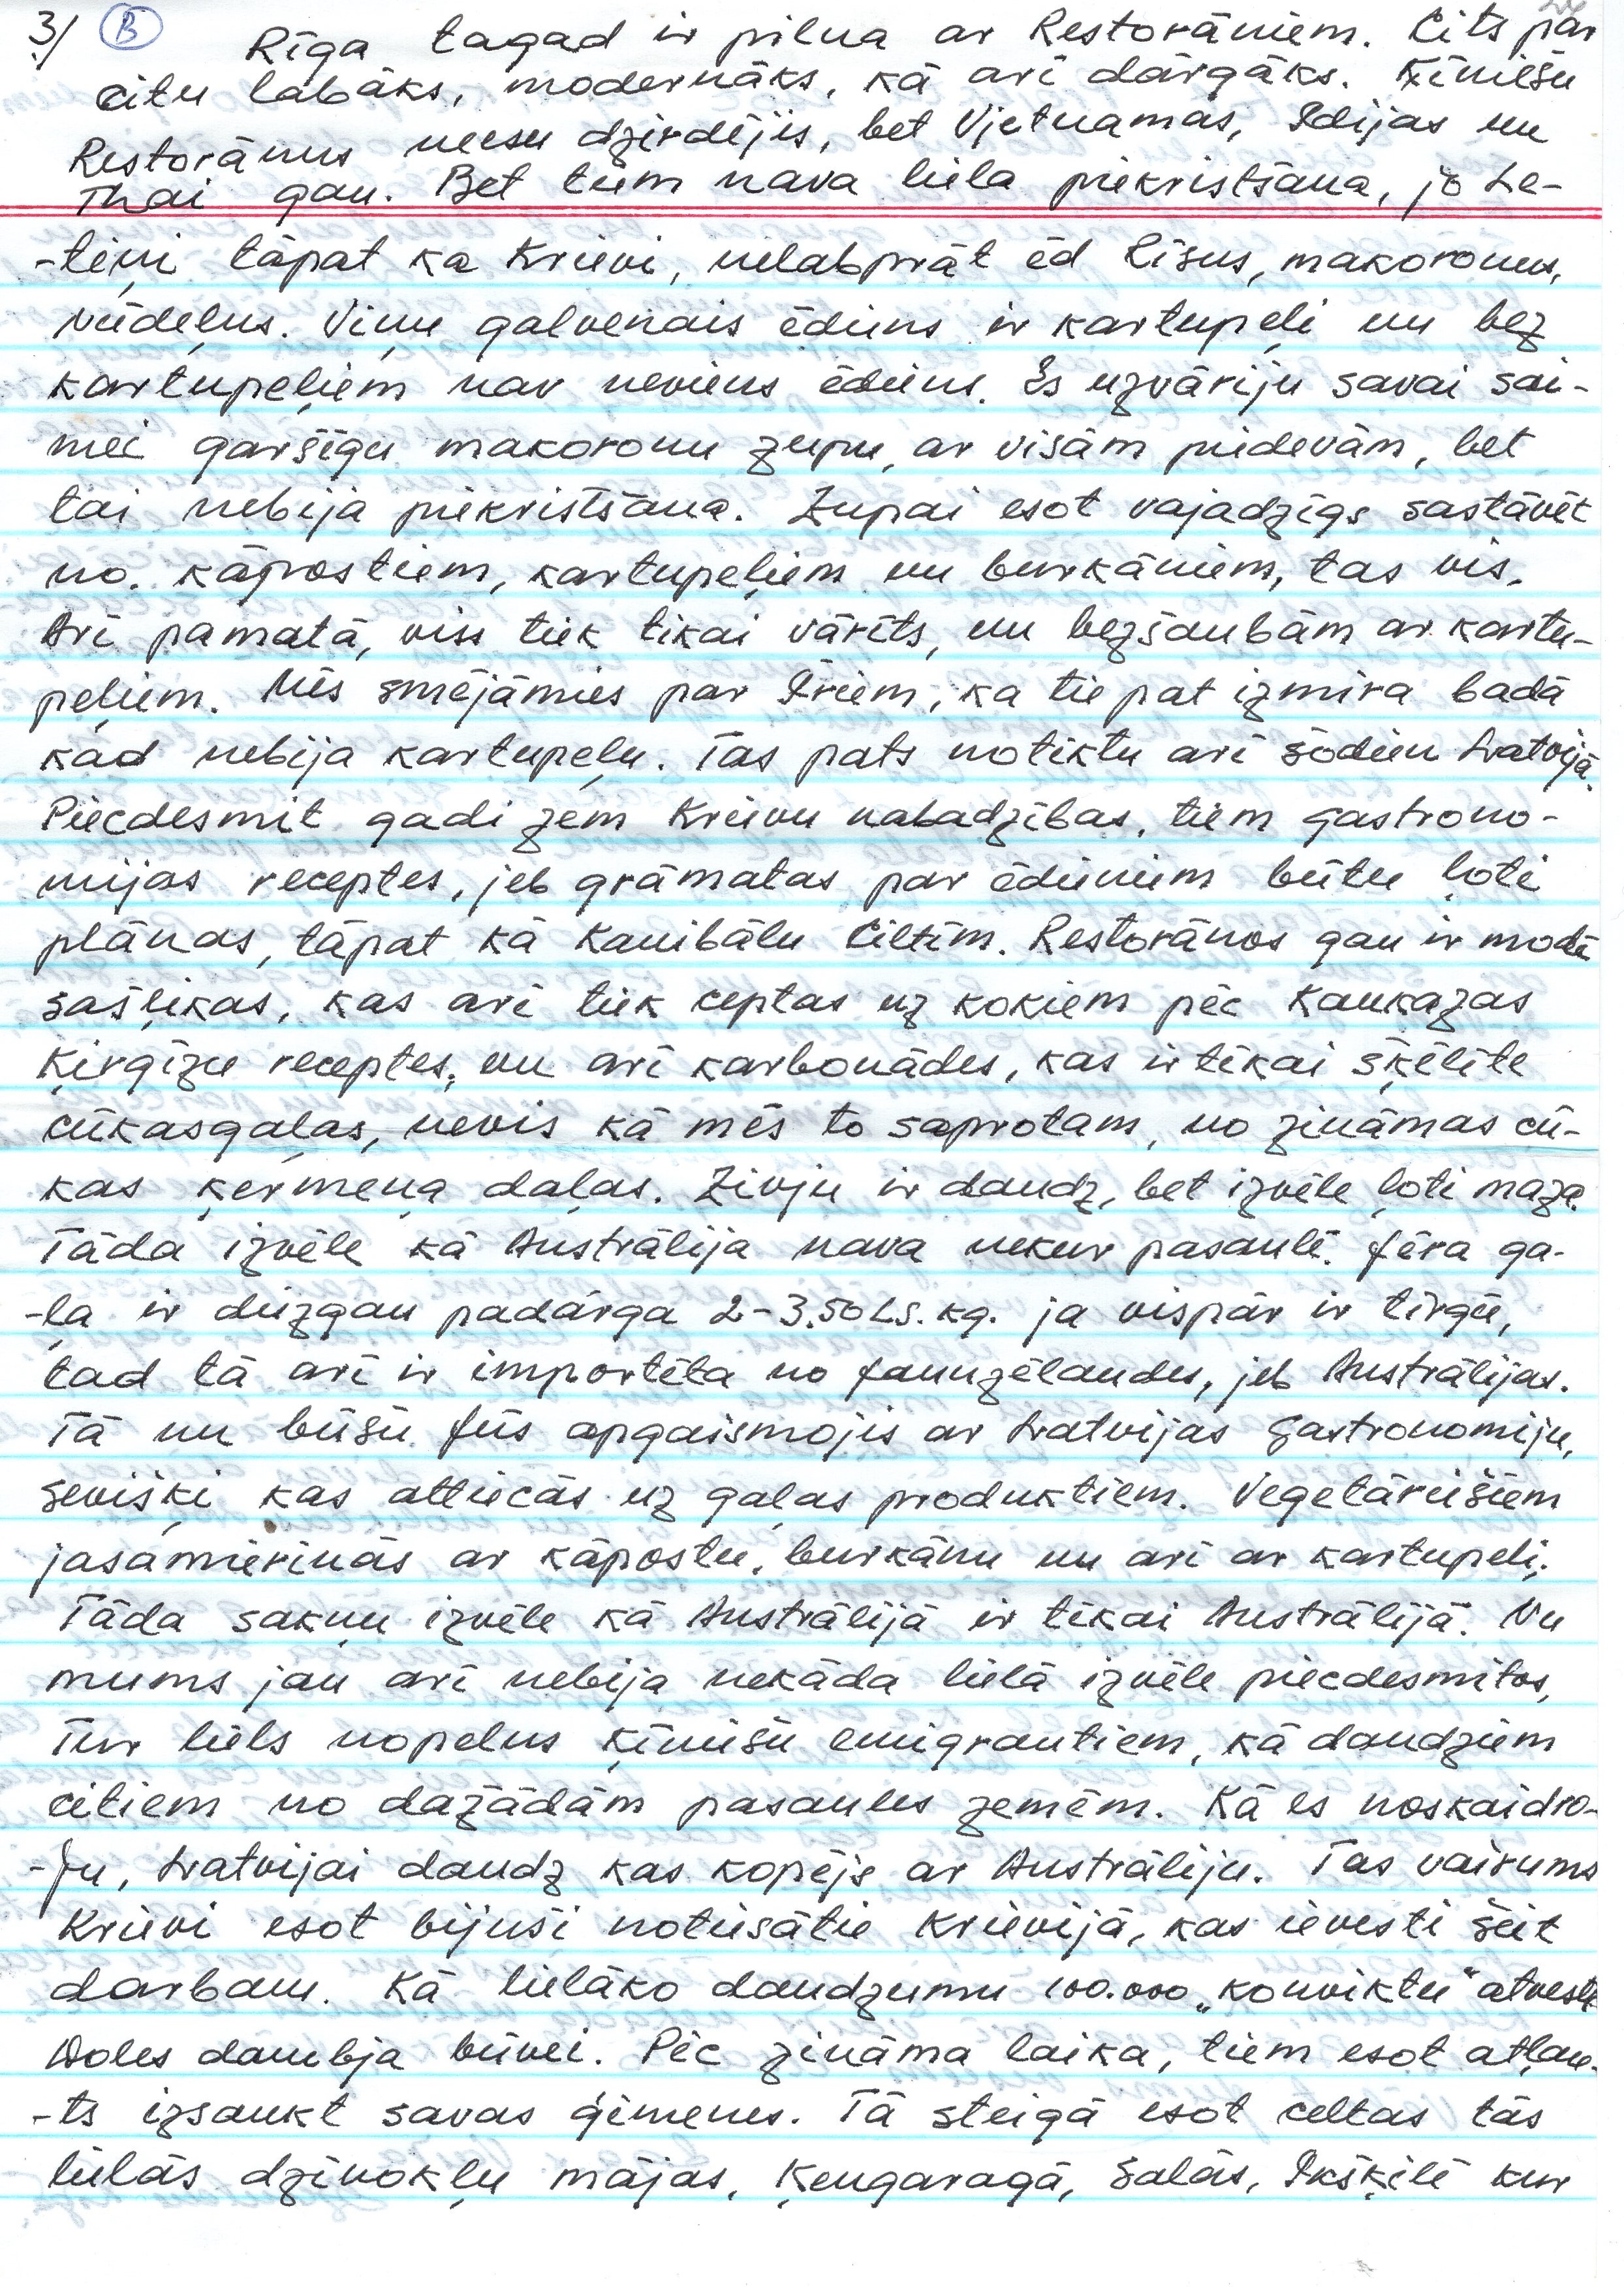 3/ B Rīga tagad ir pilna ar Restorāniem. Cits par
citu labāks, modernāks, kā arī dārgāks. Ķīniešu
Restorānus neesu dzirdējis, bet Vjetnamas, Idijas un
Thai gan. Bet tiem nava liela piekristšana, jo La-
-tiņi tāpat ka Krievi, nelabprāt ēd Rīsus, makoronus,
nūdeļus. Viņu galvenais ēdiens ir kartupeļi un bez
kartupeļiem nav neviens ēdiens. Es uzvāriju savai sai-
mei garšīgu makoronu zupu, ar visām piedevām, bet
tai nebija piekristšana. Zupai esot vajadzīgs sastāvēt
no. kāpostiem, kartupeļiem un burkāniem, tas vis.
Arī pamatā, viss tiek tikai vārīts, un bezšaubām ar kartu-
peļiem. Mēs smējāmies par Īriem, ka tie pat izmira badā
kad nebija kartupeļu. Tas pats notiktu arī šodien Latvijā.
Piecdesmit gadi zem Krievu nabadzības, tiem gastrono-
mijas receptes, jeb grāmatas par ēdieniem būtu ļoti
plānas, tāpat kā Kanibālu Ciltīm. Restorānos gan ir modē
šašļikas, kas arī tiek ceptas uz kokiem pēc Kaukazas
Ķirgīzu receptes, un arī karbonādes, kas ir tikai šķēlīte
cūkasgaļas, nevis kā mēs to saprotam, no zināmas cū-
kas ķermeņa daļas. Zivju ir daudz, bet izvēle ļoti maza.
Tāda izvēle kā Austrālija nava nekur pasaulē. Jēra ga-
-ļa ir diezgan padārga 2-3.50 Ls. kg. ja vispār ir tirgū,
tad tā arī ir importēta no Jaunzēlandes, jeb Austrālijas.
Tā nu būšu Jūs apgaismojis ar Latvijas Gastronomiju,
seviški kas attiecās uz gaļas produktiem. Vegetāriešiem
jasamierinās ar kāpostu, burkānu un arī ar kartupeli.
Tāda sakņu izvēle kā Austrālijā ir tikai Austrālijā. Nu
mums jau arī nebija nekāda lielā izvēle piecdesmitos,
Tur liels nopelns ķīniešu emigrantiem, kā daudziem
citiem no dažādām pasaules zemēm. Kā es noskaidro-
-ju, Latvijai daudz kas kopējs ar Austrāliju. Tas vairums
Krievi esot bijuši notiesātie Krievijā, kas ievesti šeit
darbam. Kā lielāko daudzumu 100.000 „konviktu" atvesti
Doles dambja būvei. Pēc zināma laika, tiem esot atļau-
-ts izsaukt savas ģimenes. Tā steigā esot celtas tās
lielās dzīvokļu mājas, Ķengaragā, Salās, Ikšķilē kur